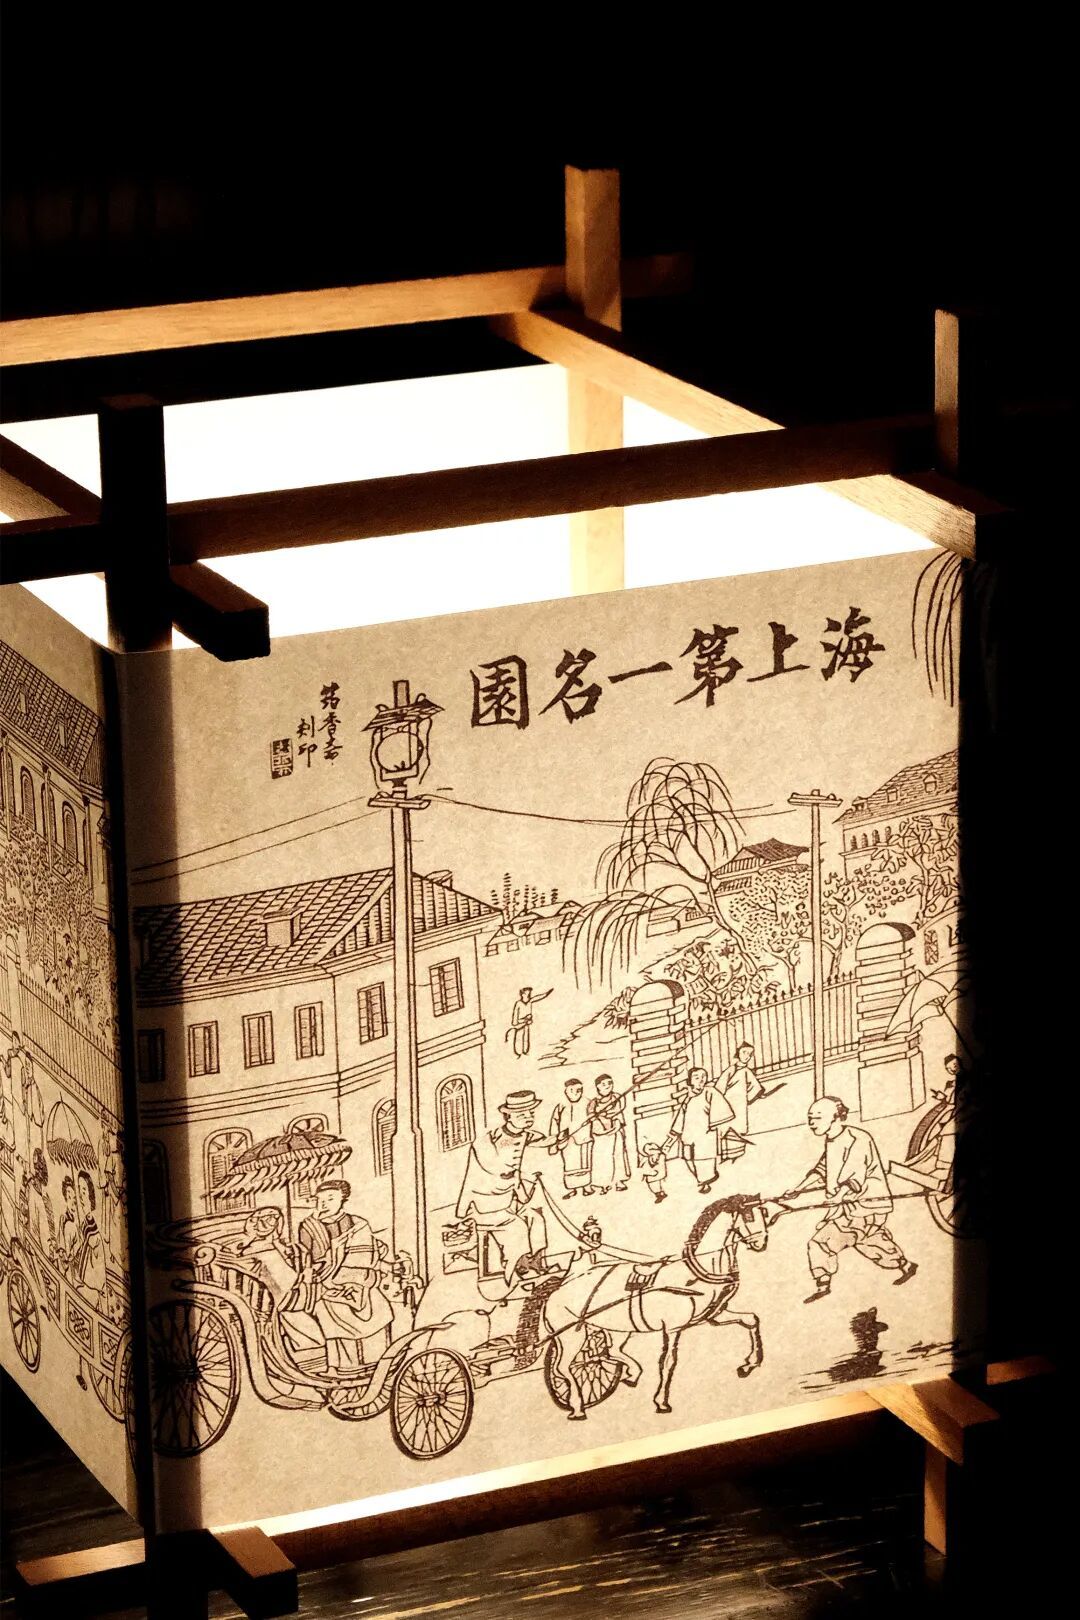 海上第一名園
筠香斋
刻印